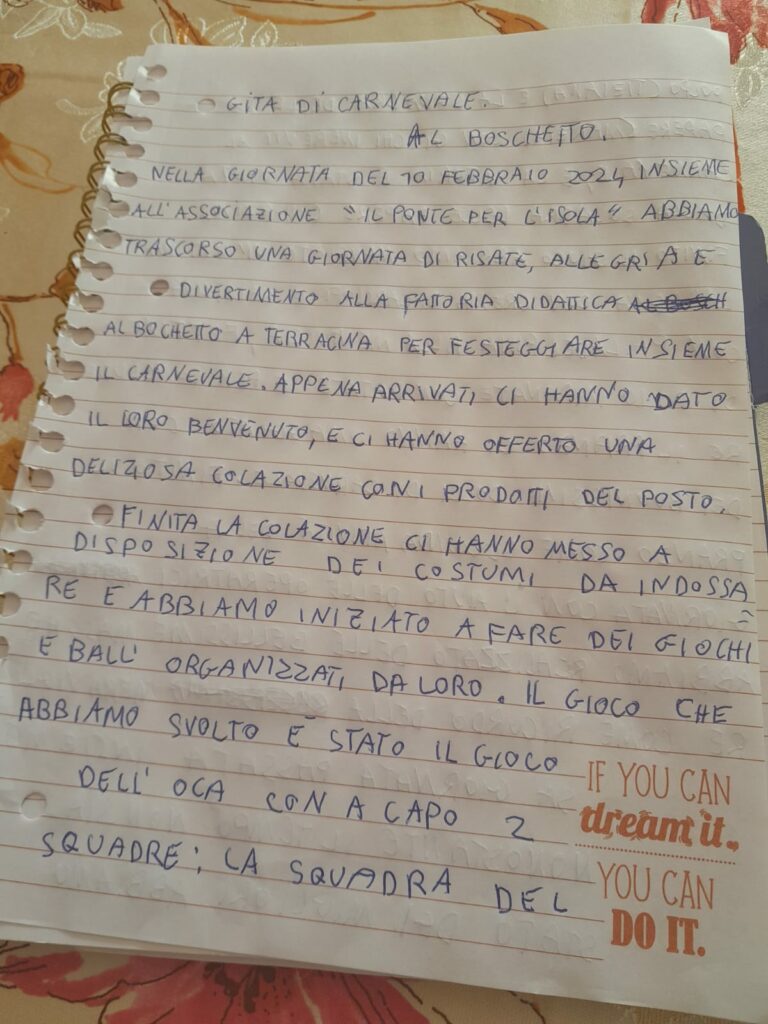 GITA DI CARNEVALE.
AL BOSCHETTO.
NELLA GIORNATA DEL 10 FEBBRAIO 2024 INSIEME
ALL'ASSOCIAZIONE "IL PONTE PER L'ISOLA" ABBIAMO
TRASCORSO UNA GIORNATA DI RISATE, ALLEGRIA E
DIVERTIMENTO ALLA FATTORIA DIDATTICA AL BOSCH
AL BOCHETTO A TERRACINA PER FESTEGGIARE INSIEME
IL CARNEVALE. APPENA ARRIVATI CI HANNO DATO
IL LORO BENVENUTO, E CI HANNO OFFERTO UNA
DELIZIOSA COLAZIONE CON I PRODOTTI DEL POSTO.
FINITA LA COLAZIONE CI HANNO MESSO A
DISPOSIZIONE DEI COSTUMI DA INDOSSA
RE E ABBIAMO INIZIATO A FARE DEI GIOCHI
E BALL' ORGANIZZATI DA LORO. IL GIOCO CHE
ABBIAMO SVOLTO E' STATO IL GIOCO
DELL' OCA CON A CAPO 2
SQUADRE: LA SQUADRA DEL
IF YOU CAN
dream it.
YOU CAN
DO IT.